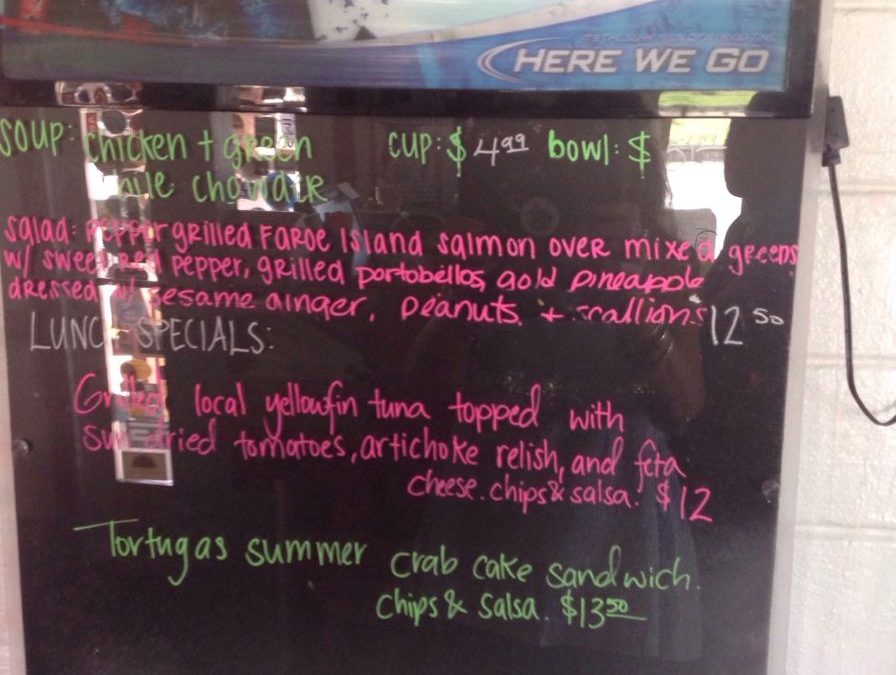 HERE WE GO
SOUP: chicken + green cup: $ 4.99 bowl: $
chile chowder
salad: Pepper grilled Faroe Island salmon over mixed greens
w/ sweet red pepper, grilled portobellos, gold pineapple
dressed w/ sesame ginger, peanuts + scallions 12 50
LUNCH SPECIALS:
Grilled local yellowfin tuna topped with
sun dried tomatoes, artichoke relish, and feta
cheese. chips & salsa. $12
Tortugas summer crab cake sandwich.
chips & salsa. $13 50